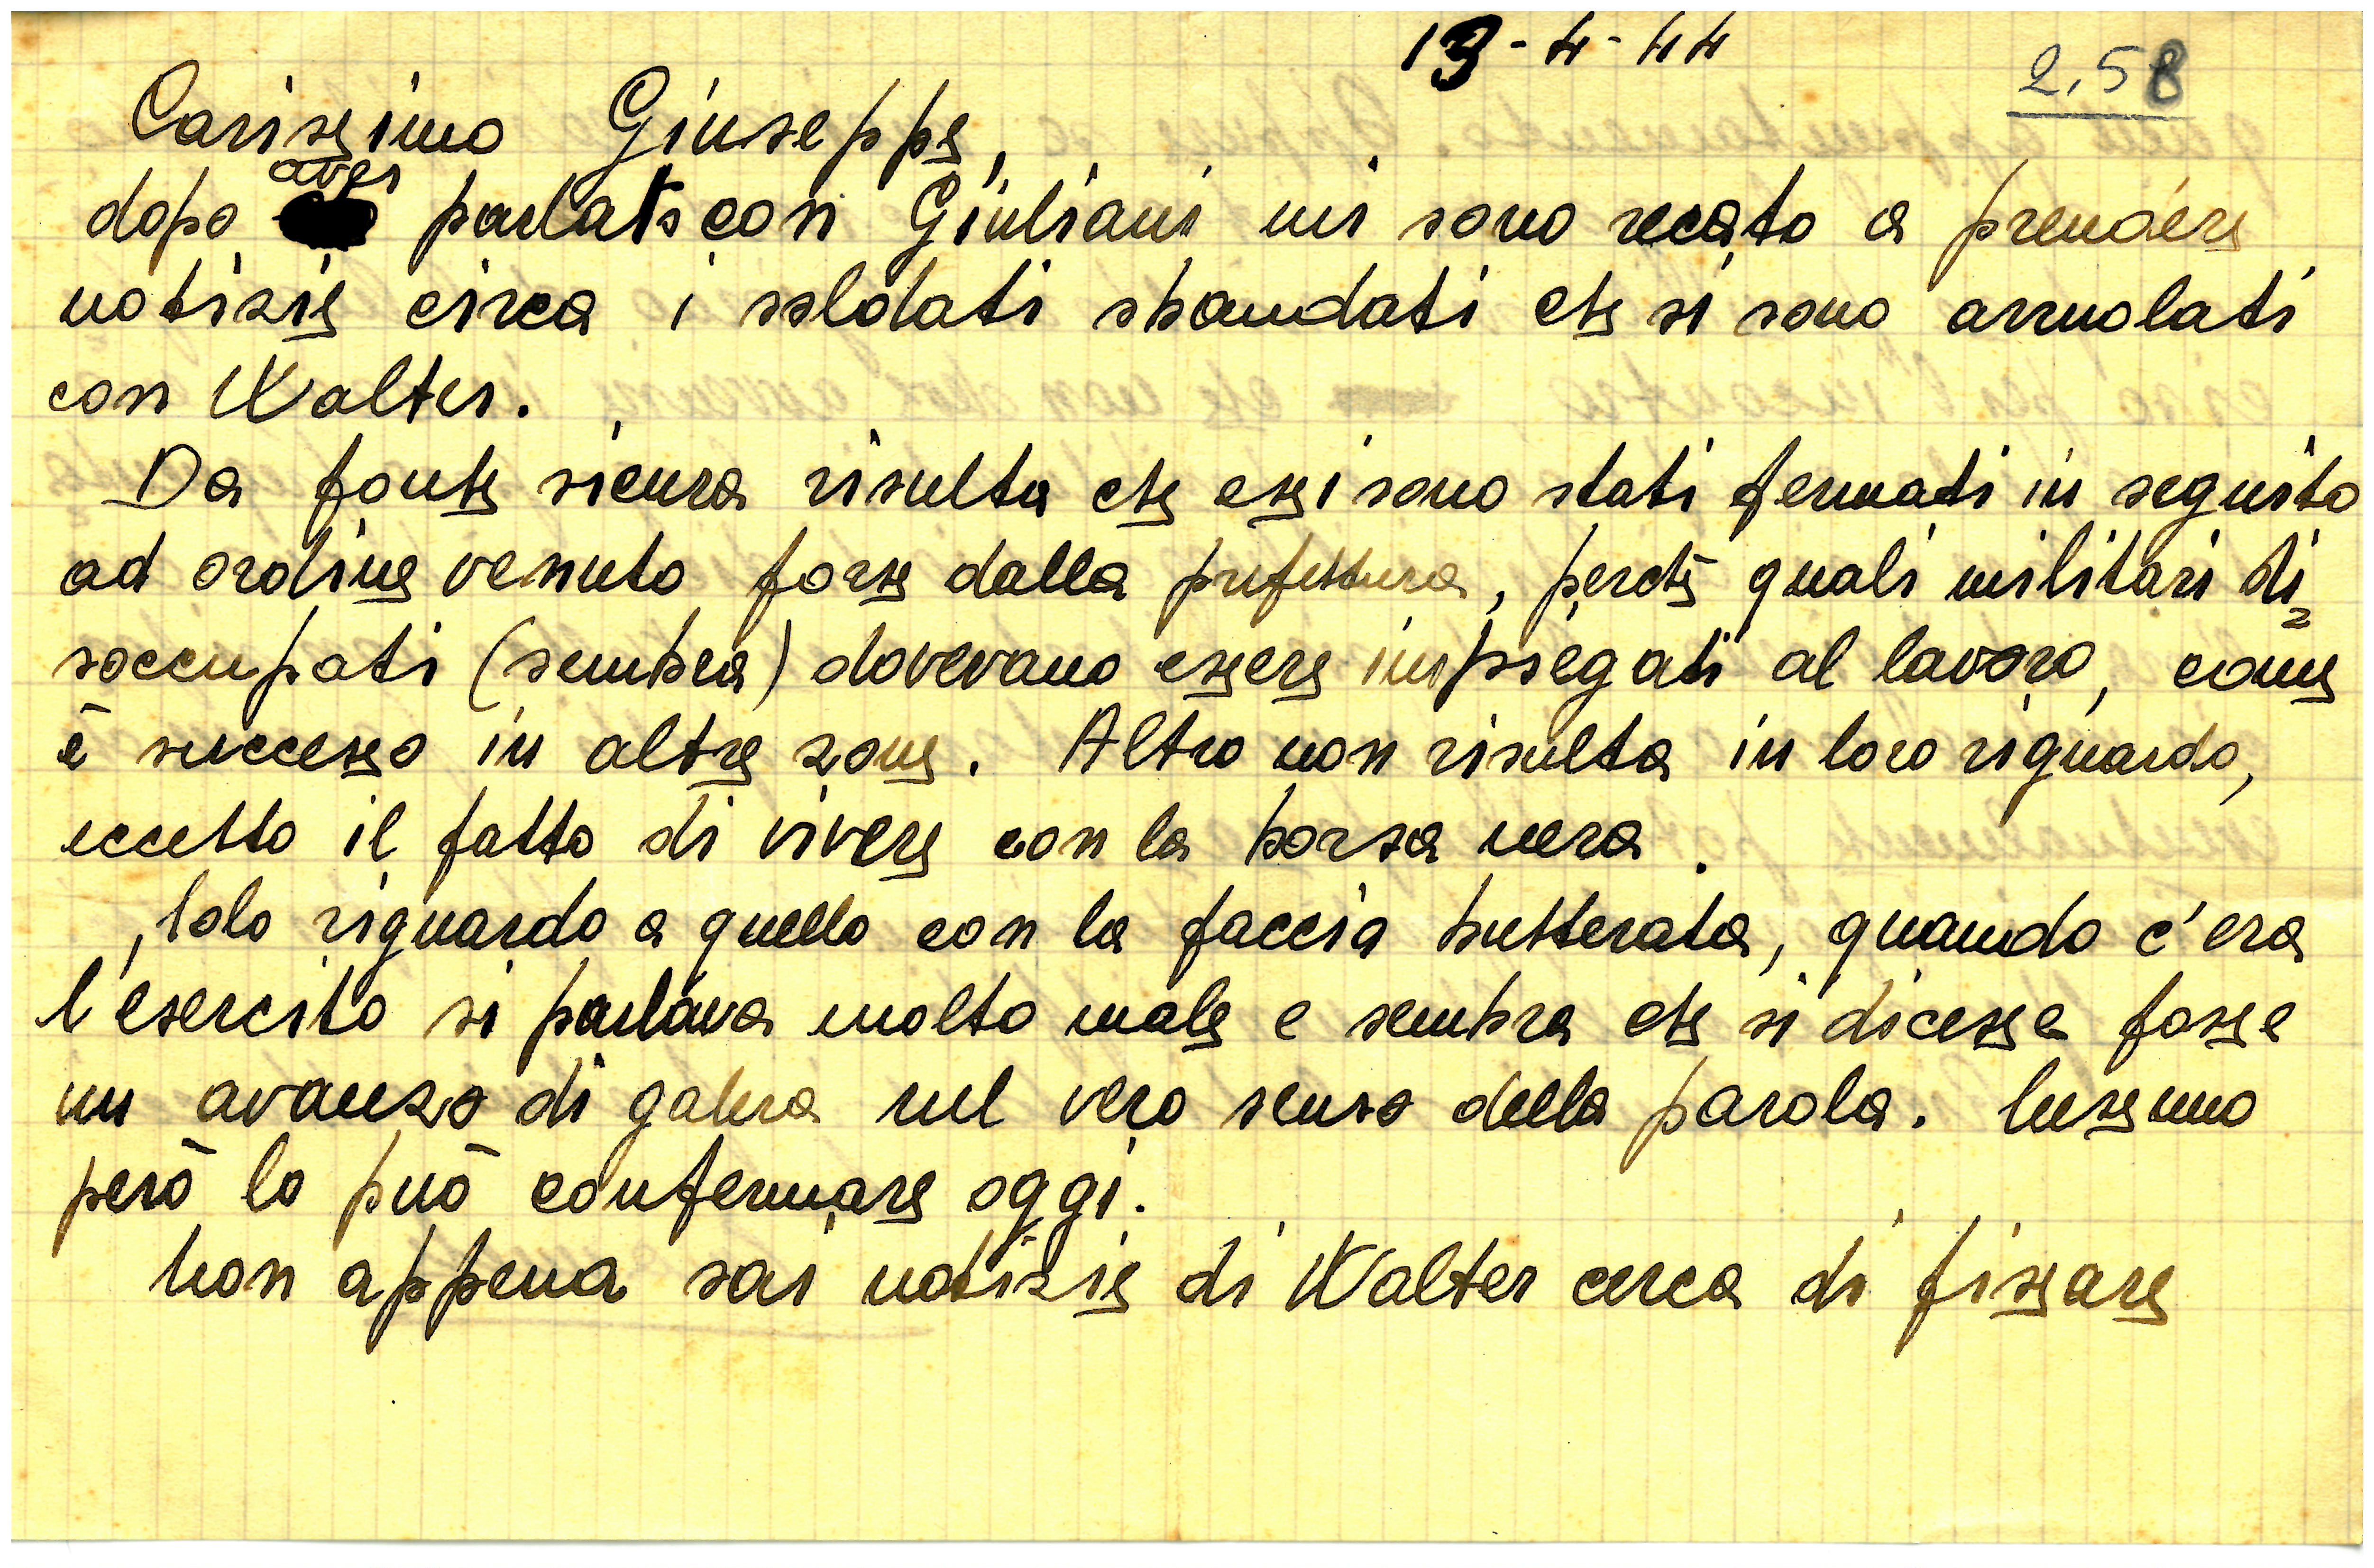 13-4-44
2.58
Carissimo Giuseppe,
dopo aver parlato con Giuliani mi sono recato a prendere
notizie circa i soldati sbandati che si sono arruolati
con Walter.
Da fonte sicura risulta che essi sono stati fermati in seguito
ad ordine venuto forse dalla prefettura, perchè quali militari di=
soccupati (sembra) dovevano essere impiegati al lavoro, come
è successo in altre zone. Altro non risulta in loro riguardo,
eccetto il fatto di vivere con la borsa nera.
Solo riguardo a quello con la faccia butterata, quando c'era
l'esercito si parlava molto male e sembra che si dicesse fosse
un avanzo di galera nel vero senso della parola. Nessuno
però lo può confermare oggi.
Non appena sai notizie di Walter cerca di fissare